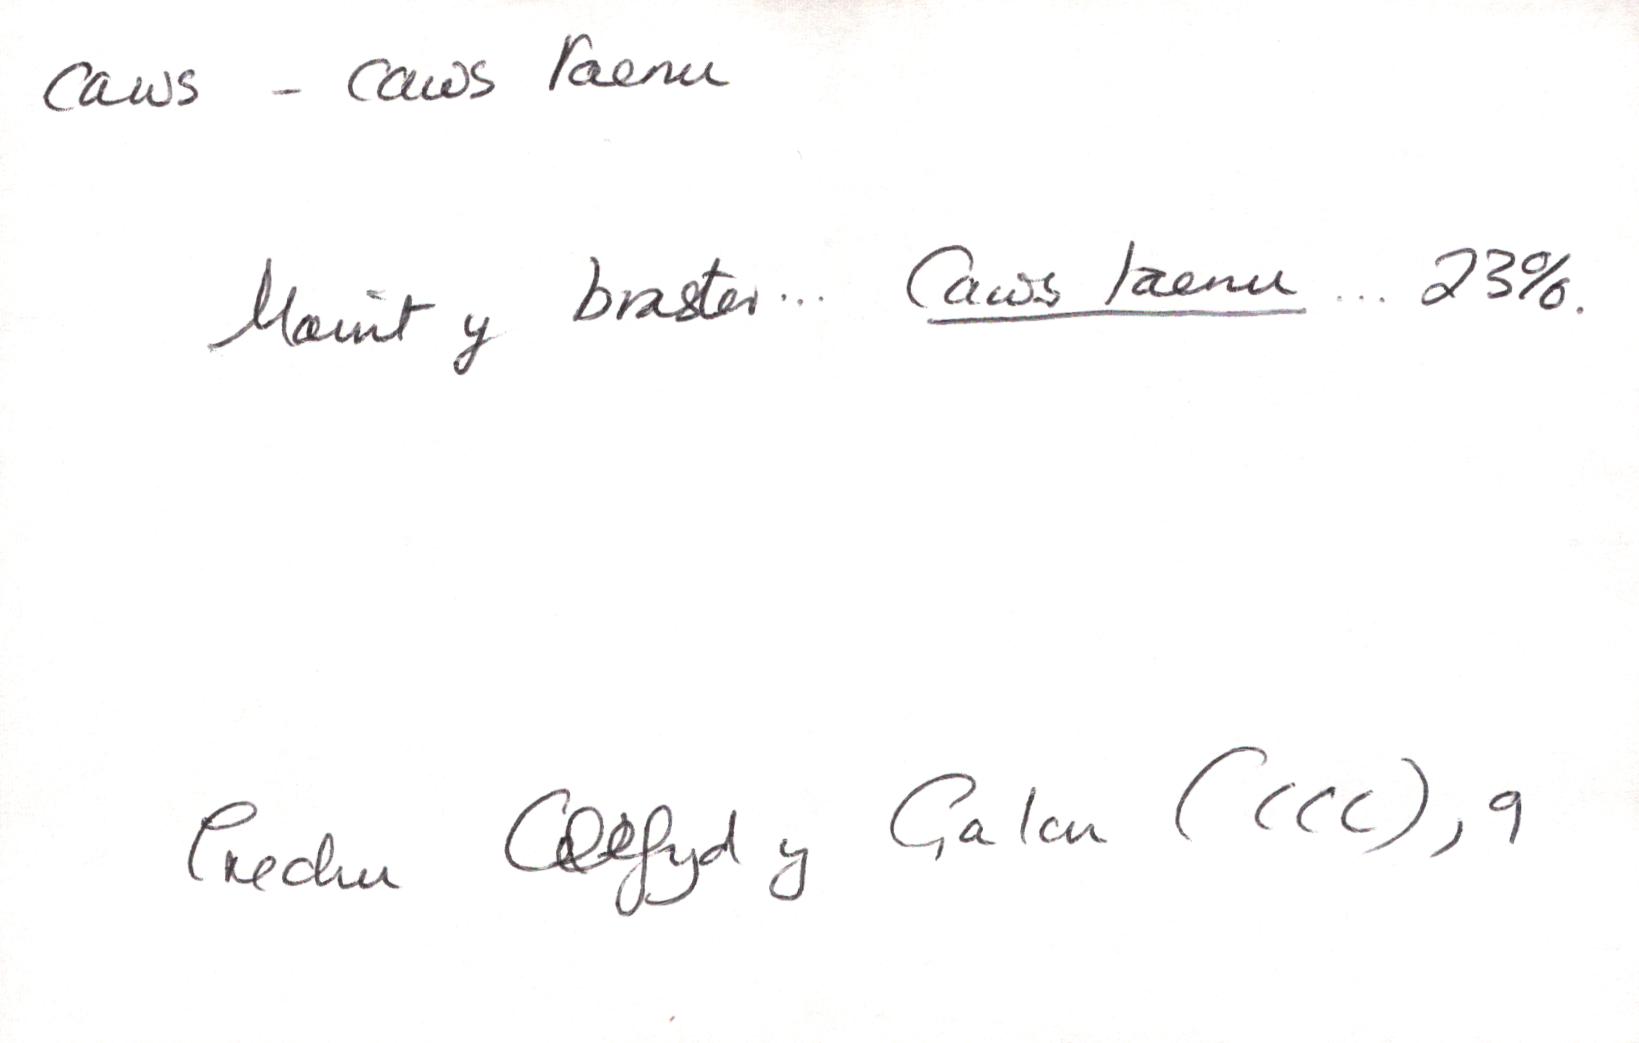 caws - caws taenu
Maint y braster... Caws taenu ... 23%.
Trechu Clefyd y Galon (CCC), 9